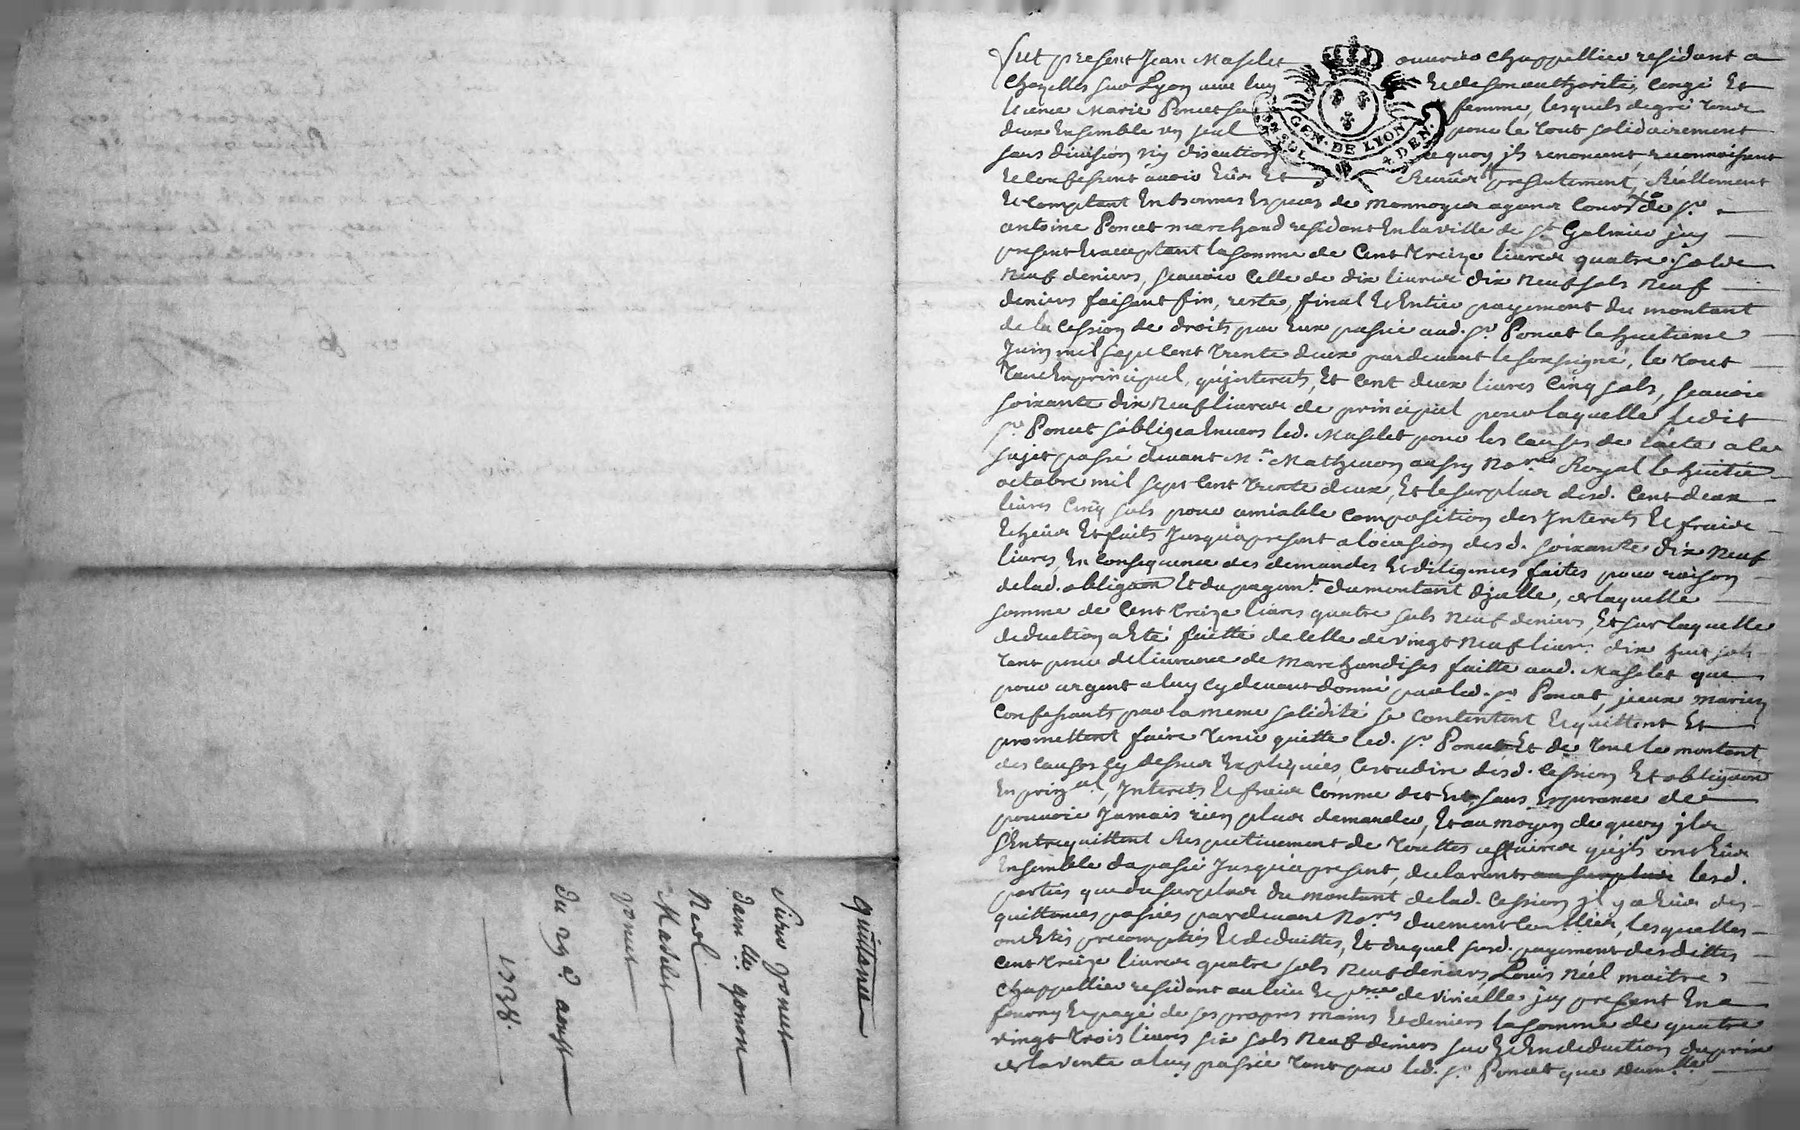 quittance
Sieur poncet
dam.lle ponson
Neel
Masselet
poncet
du 29e aoust
1738.
Fut present Jean Masselet ouvrier chappellier residant a
Chazelles sur Lyon avec luy Et de son authorité, Congé Et
Licence Marie Poncet sa femme, lesquels de gré tous
deux Ensemble un seul pour le tout solidairement
sans division ny discution a quoy ils renoncent reconnoissent
Et Confessent avoir Eü Et Receu presentement, Réellement
Et Comptant En bonnes Especes de monnoyes ayans Cours de Sr.
antoine Poncet marchand residant En la ville de St. Galmier icy
present Et acceptant la somme de Cent treize livres quatre sols
neuf deniers, scavoir Celle de dix livres dix neuf sols neuf
deniers faisant fin, reste, final Et Entier payement du montant
de la Cession de droits par Eux passée aud. Sr. Poncet le huitieme
Juin mil sept Cent trente deux pardevant le soussigné, le tout
tant En principal, qu'interets, Et Cent deux livres Cinq sols, scavoir
soixante dix neuf livres de principal pour laquelle ledit
Sr. Poncet s'obligea Envers led. Masselet pour les Causes de l'acte a ce
sujet passé devant Me. Mathevon aussy Nore. Royal le huitie
octobre mil sept Cent trente deux, Et le surplus desd. Cent deux
livres Cinq sols pour amiable Composition des Interets Et frais
Echeus Et faits Jusqu'a present a l'ocasion desd. soixante dix neuf
livres, En Consequence des demandes Et diligences faites pour raison
de lad. obligaon Et du payemt. du montant d'jcelle, de laquelle
somme de Cent treize livres quatre sols neuf deniers, Et sur laquelle
deduction a Eté faitte de Celle de vingt neuf livres dix huit sols
tant pour delivrance de marchandises faitte aud. Masselet que
pour argent a luy Cy devant donné par led. Sr. Poncet, jceux mariez
Confessants par la meme solidité se Contentent Et quittent Et
promettent faire tenir quitte led. Sr. Poncet Et de tout le montant
des Causes Cy dessus Expliquées, C'est a dire desd. Cession Et obligaon
En prinpal, Interets Et frais Comme dit Est, sans Esperance de
pouvoir Jamais rien plus demander, Et au moyen de quoy jls
s'Entrequittent Respectivement de touttes affaires qu'jls ont Eües
Ensemble du passé Jusqu'a present, declarants au surplus lesd.
parties que du surplus du montant de lad. Cession jl y a Eü des
quittances passées pardevant Nores duement Controllées, lesquelles
ont Etés precomptées Et deduittes, Et duquel susd. payement desdittes
Cent treize livres quatre sols neuf deniers, Louis Néel maitre
Chappellier residant au lieu Et psse de viricelle jcy present En a
fourny Et payé de ses propres mains Et deniers la somme de quatre
vingt trois livres six sols neuf deniers sur Et En deduction du prix
de la vente a luy passée tant par led. Sr. Poncet que dam.lle
GEN. DE LYON
4 DEN.